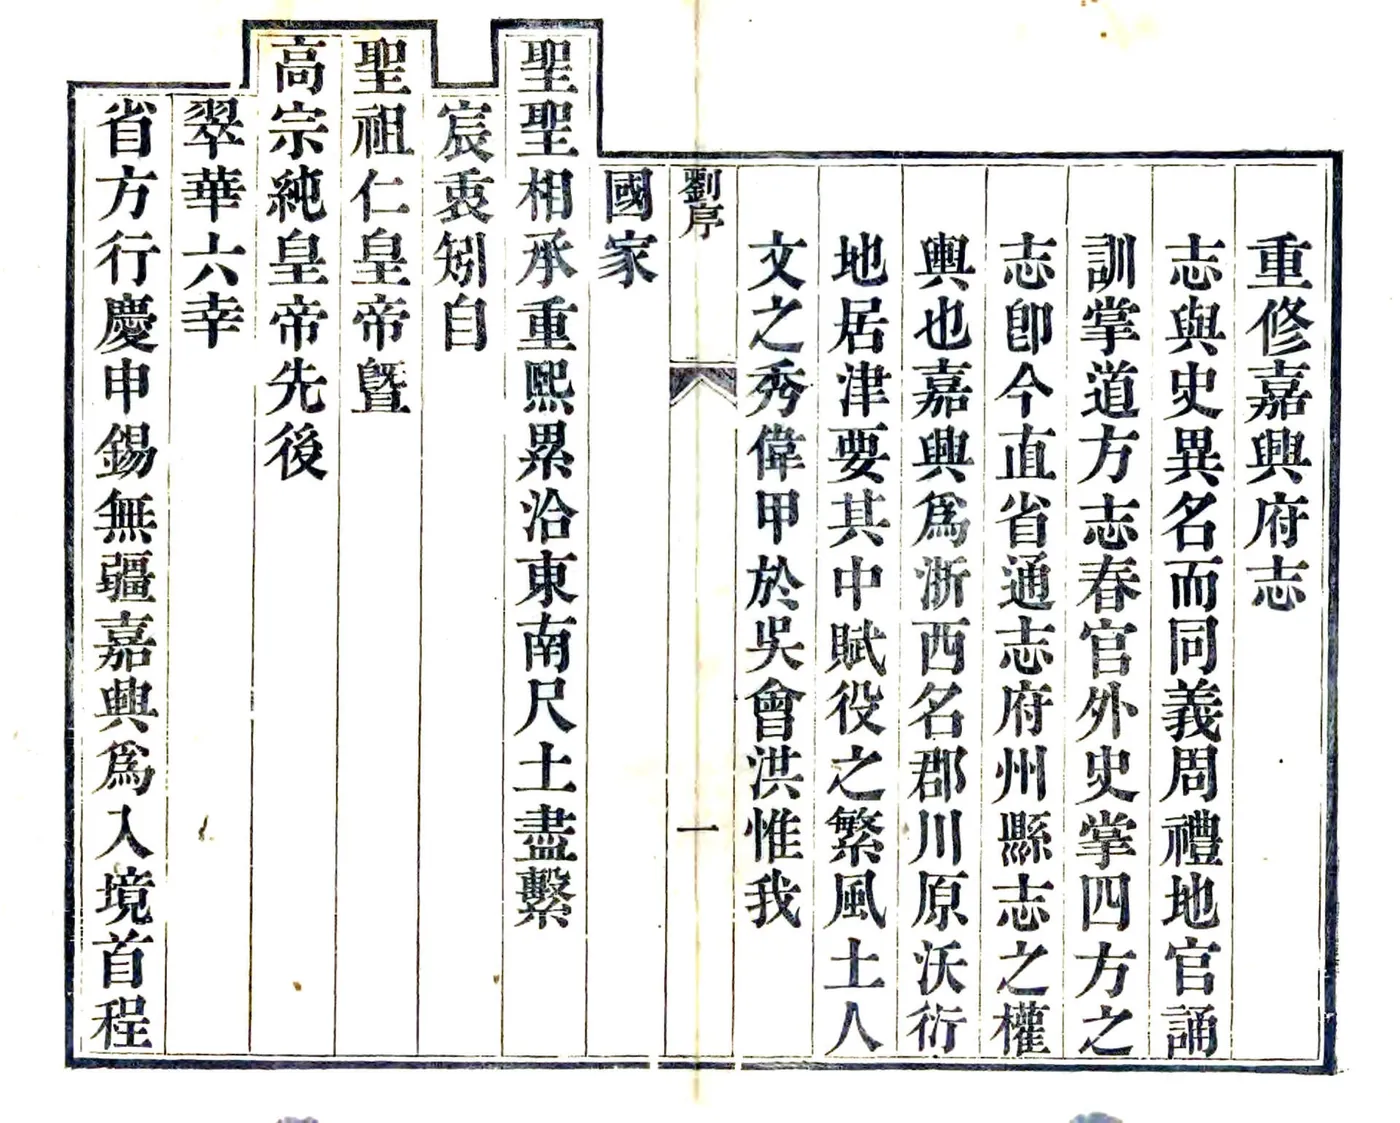 重修嘉興府志
志與史異名而同義周禮地官誦
訓掌道方志春官外史掌四方之
志卽今直省通志府州縣志之權
輿也嘉興爲浙西名郡川原沃衍
地居津要其中賦役之繁風土人
文之秀偉甲於吳會洪惟我
劉序
一
國家
聖聖相承重熙累洽東南尺土盡繫
宸衷矧自
聖祖仁皇帝暨
高宗純皇帝先後
翠華六幸
省方行慶申錫無疆嘉興爲入境首程